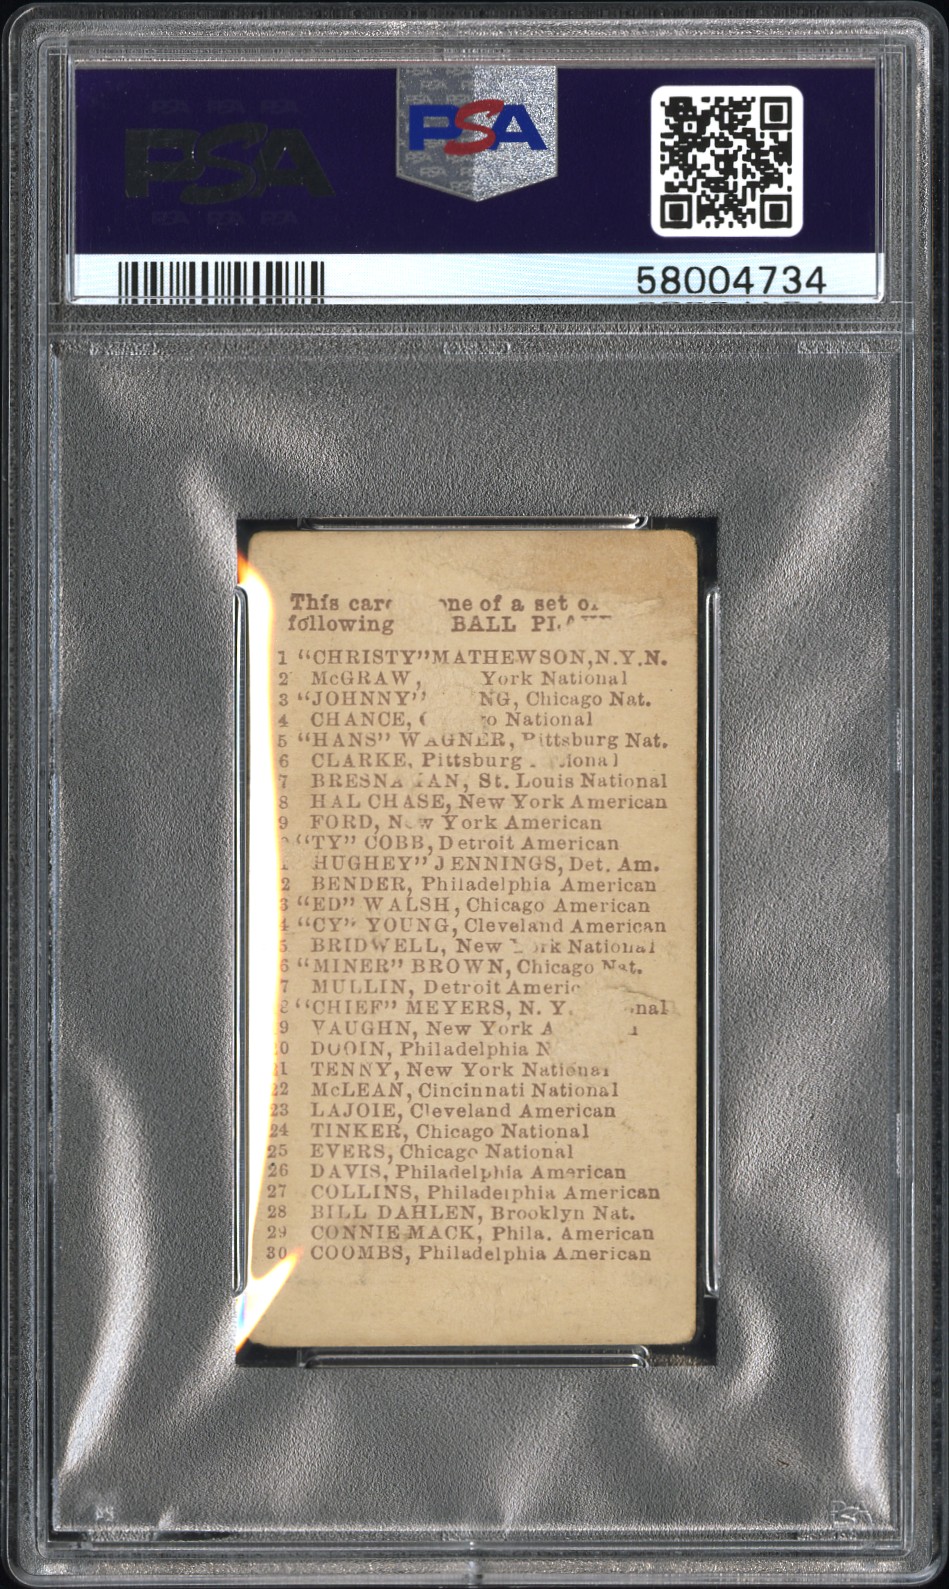 PSA
PSA
58004734
This car ne of a set o
following BALL PLAYE
1 "CHRISTY" MATHEWSON, N.Y.N.
2 McGRAW, York National
3 "JOHNNY" NG, Chicago Nat.
4 CHANCE, o National
5 "HANS" WAGNER, Pittsburg Nat.
6 CLARKE, Pittsburg ional
7 BRESNA AN, St. Louis National
8 HAL CHASE, New York American
9 FORD, New York American
"TY" COBB, Detroit American
HUGHEY" JENNINGS, Det. Am.
2 BENDER, Philadelphia American
3 "ED" WALSH, Chicago American
4 "CY" YOUNG, Cleveland American
5 BRIDWELL, New York National
6 "MINER" BROWN, Chicago Nat.
7 MULLIN, Detroit Americ
8 "CHIEF" MEYERS, N. Y. nal
9 VAUGHN, New York A
0 DOOIN, Philadelphia N
21 TENNY, New York National
22 McLEAN, Cincinnati National
23 LAJOIE, Cleveland American
24 TINKER, Chicago National
25 EVERS, Chicago National
26 DAVIS, Philadelphia American
27 COLLINS, Philadelphia American
28 BILL DAHLEN, Brooklyn Nat.
29 CONNIE MACK, Phila. American
30 COOMBS, Philadelphia American